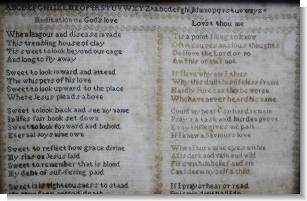 ABCDEFGHIJKLMNOPQRSTUVWXYZ abcdefghijklmnopqrstuvwxyz
Meditation on God's love
When langour and disease invade
This trembling house of clay
Tis sweet to look beyond our cage
And long to fly away
Sweet to look inward and attend
The whispers of his love
Sweet to look upward to the place
Where Jesus pleads above
Sweet to look back and see my name
In life's fair book set down
Sweet to look forward and behold
Eternal joys my own
Sweet to reflect how grace divine
My sins on Jesus laid
Sweet to remember that is blood
My debt of suffering paid
Sweet is righteousness to stand
Lov'st thou me
Tis a point I long to know
Oft it causes anxious thoughts
Do I love the Lord or no
Am I his or am I not
If I love why am I thus
Why this dull
Hardly sure can they be worse
Who have never heard his name
Could my heart so hard remain
Prayer a task and burden prove
Every trifle gives me pain
If I knew a Saviour's love
When I turn mine eyes within
All is dark and vain and wild
Filled with unbelief and sin
Can I deem myself a child
If I pray or hear or read